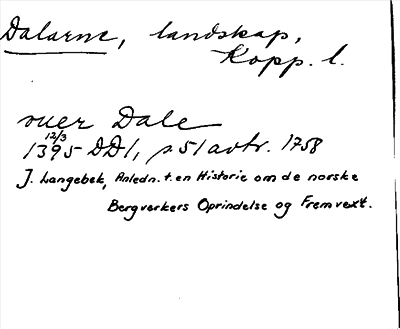 Dalarne, landskap,
Kopp. l.
over Dale
12/3
1395 DD1, s 51 avtr. 1758
J. Langebek, Anledn. t. en Historie om de norske
Bergverkers Oprindelse og Fremvext.